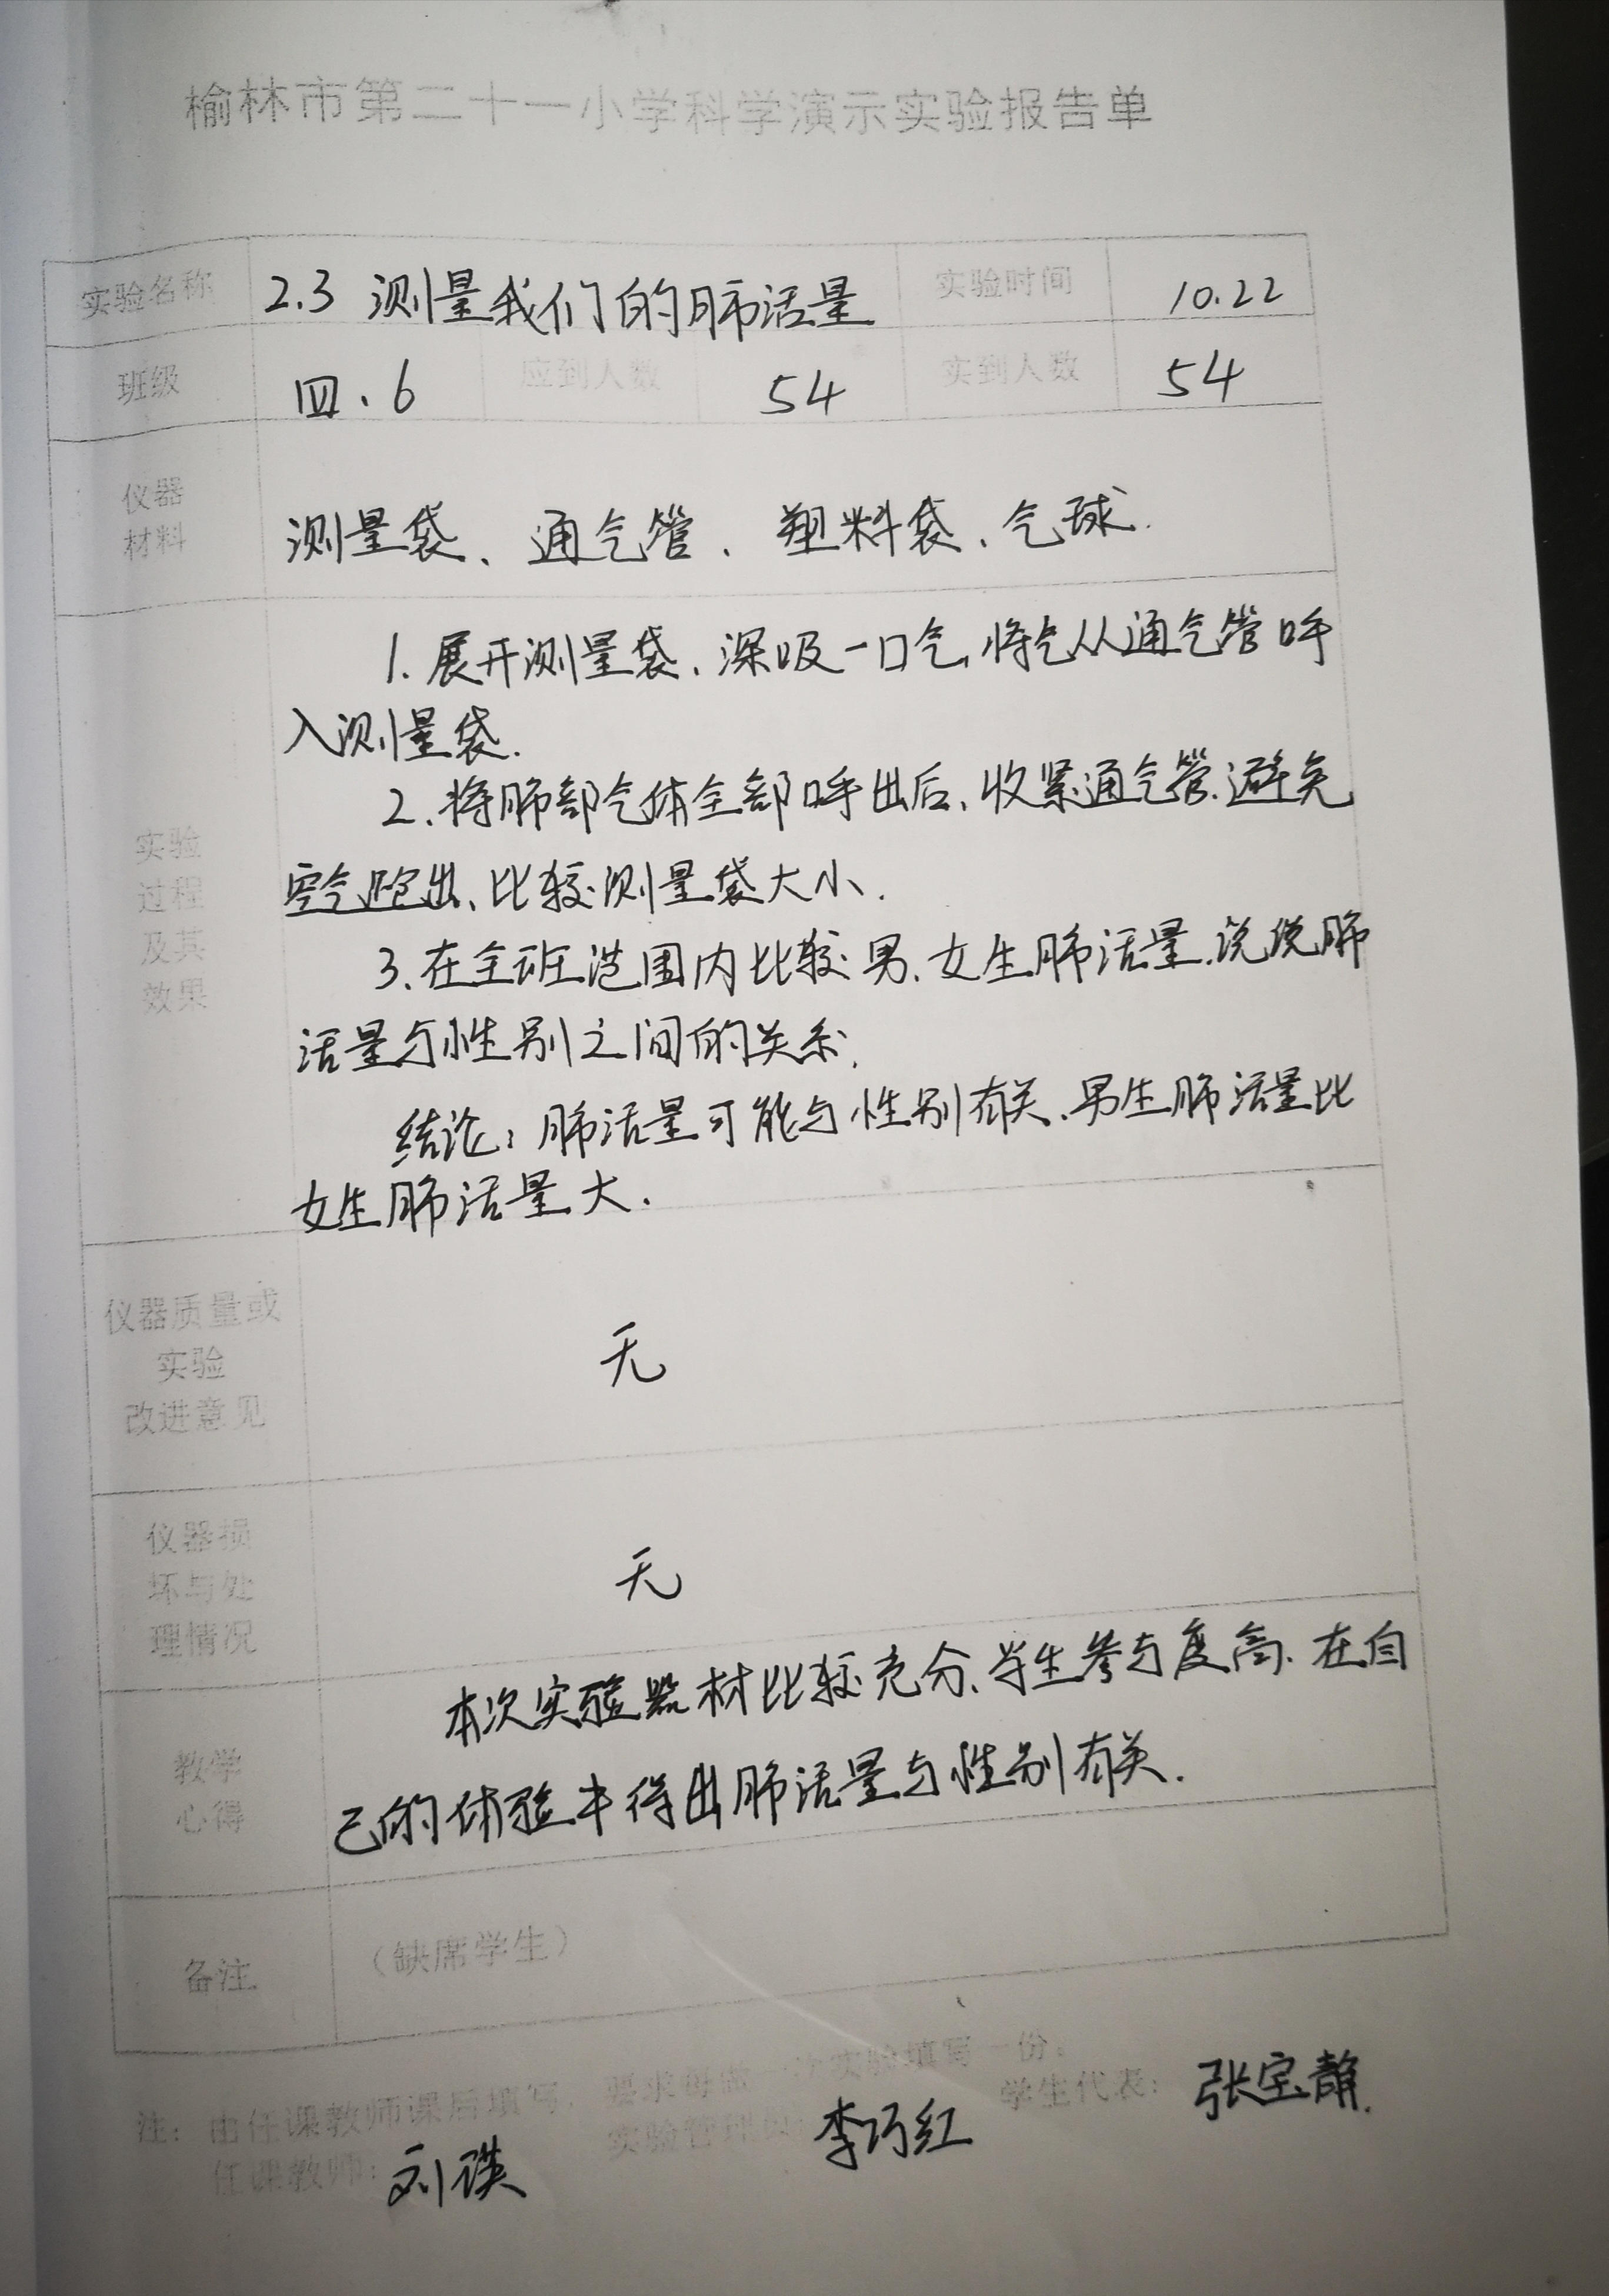 榆林市第二十一小学科学演示实验报告单
实验名称 2.3 测量我们的肺活量 实验时间 10.22
班级 四、6 应到人数 54 实到人数 54
仪器
材料
测量袋、通气管、塑料袋、气球.
实验
过程
及其
效果
1. 展开测量袋、深吸一口气,将气从通气管呼
入测量袋.
2、将肺部气体全部呼出后、收紧通气管.避免
空气跑出、比较测量袋大小.
3、在全班范围内比较男、女生肺活量.说说肺
活量与性别之间的关系.
结论:肺活量可能与性别有关、男生肺活量比
女生肺活量大.
仪器质量或
实验
改进意见
无
仪器损
坏与处
理情况
无
教学
心得
本次实验器材比较充分、学生参与度高.在自
己的体验中得出肺活量与性别有关.
备注 (缺席学生)
注:由任课教师课后填写,要求每做一次实验填写一份。
任课教师: 刘瑛 实验管理员: 李巧红 学生代表: 张宝静.